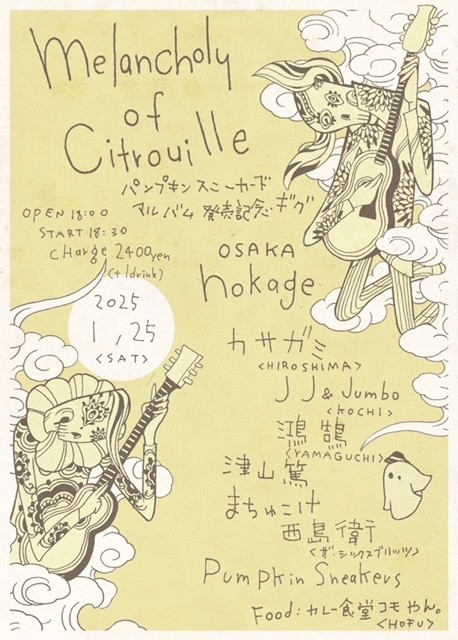 Melancholy
of
Citrouille
パンプキンスニーカード
アルバム発売記念ギグ
OPEN 18:00
START 18:30
cHarge 2400yen
(+1drink)
2025
1,25
<SAT>
OSAKA
hokage
カサガミ
<HIROSHIMA>
JJ & Jumbo
<KOCHI>
鴻鵠
<YAMAGUCHI>
津山篤
まちゅこけ
西島衛
<ザ・シックスブリッツ>
Pumpkin Sneakers
Food: カレー食堂コモやん。
<HOFU>